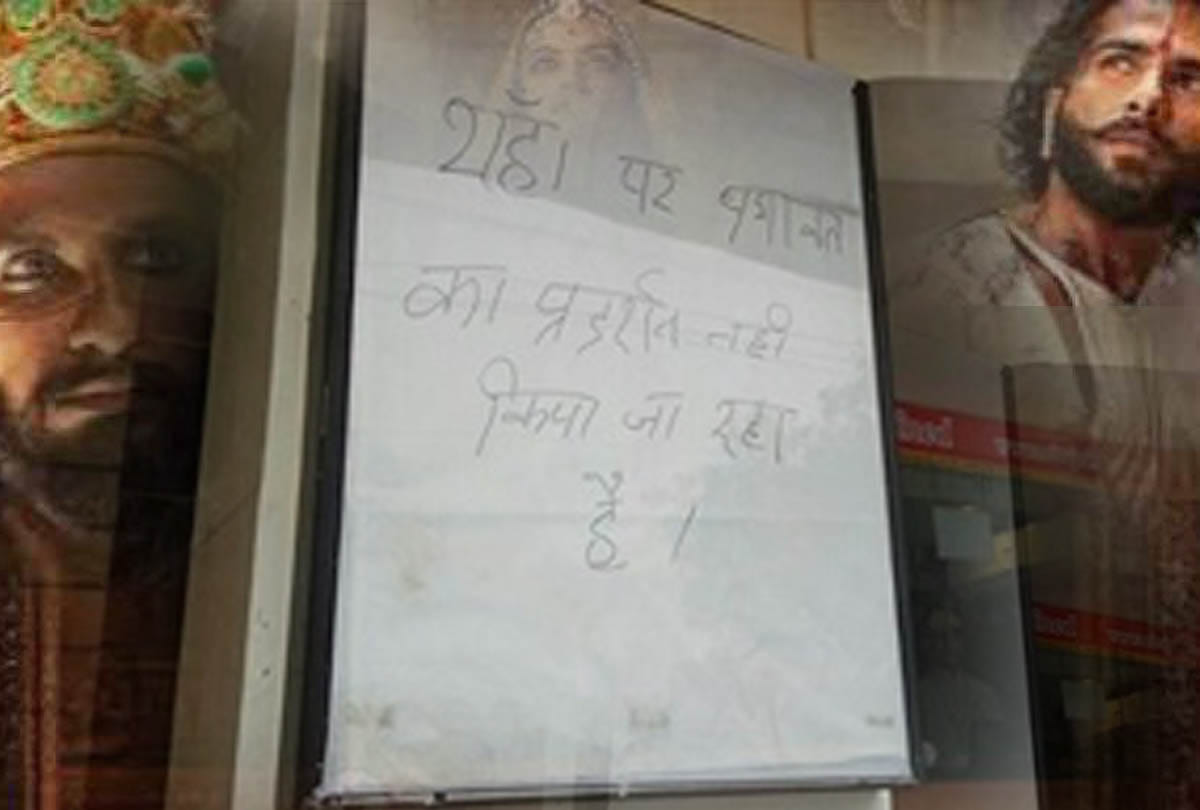 यहाँ पर पद्मावत
का प्रदर्शन नही
किया जा रहा
है ।